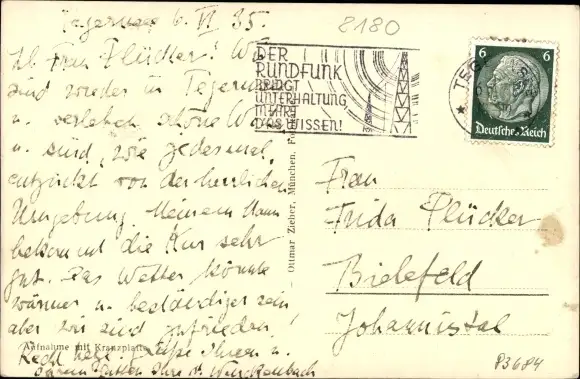 Tegernsee 6. VI 35.
8180
Lb. Frau Flücker! Wir
sind wieder in Tegernsee
u. verleben schöne
u. sind, wie jedesmal,
entzückt von der herrlichen
Umgebung. Meinem Mann
bekommt die Kur sehr
gut. Das Wetter könnte
wärmer u. beständiger sein
aber wir sind zufrieden!
Recht herzl. Grüße Ihnen u.
Ihre
Aufnahme mit Kranzplatte
DER
RUNDFUNK
BRINGT
UNTERHALTUNG
UND
WISSEN!
Ottmar Zieher, München.
6 6
Deutsches Reich
TEGERNSEE
Frau
Frida Flücker
Bielefeld
Johannistal
83684